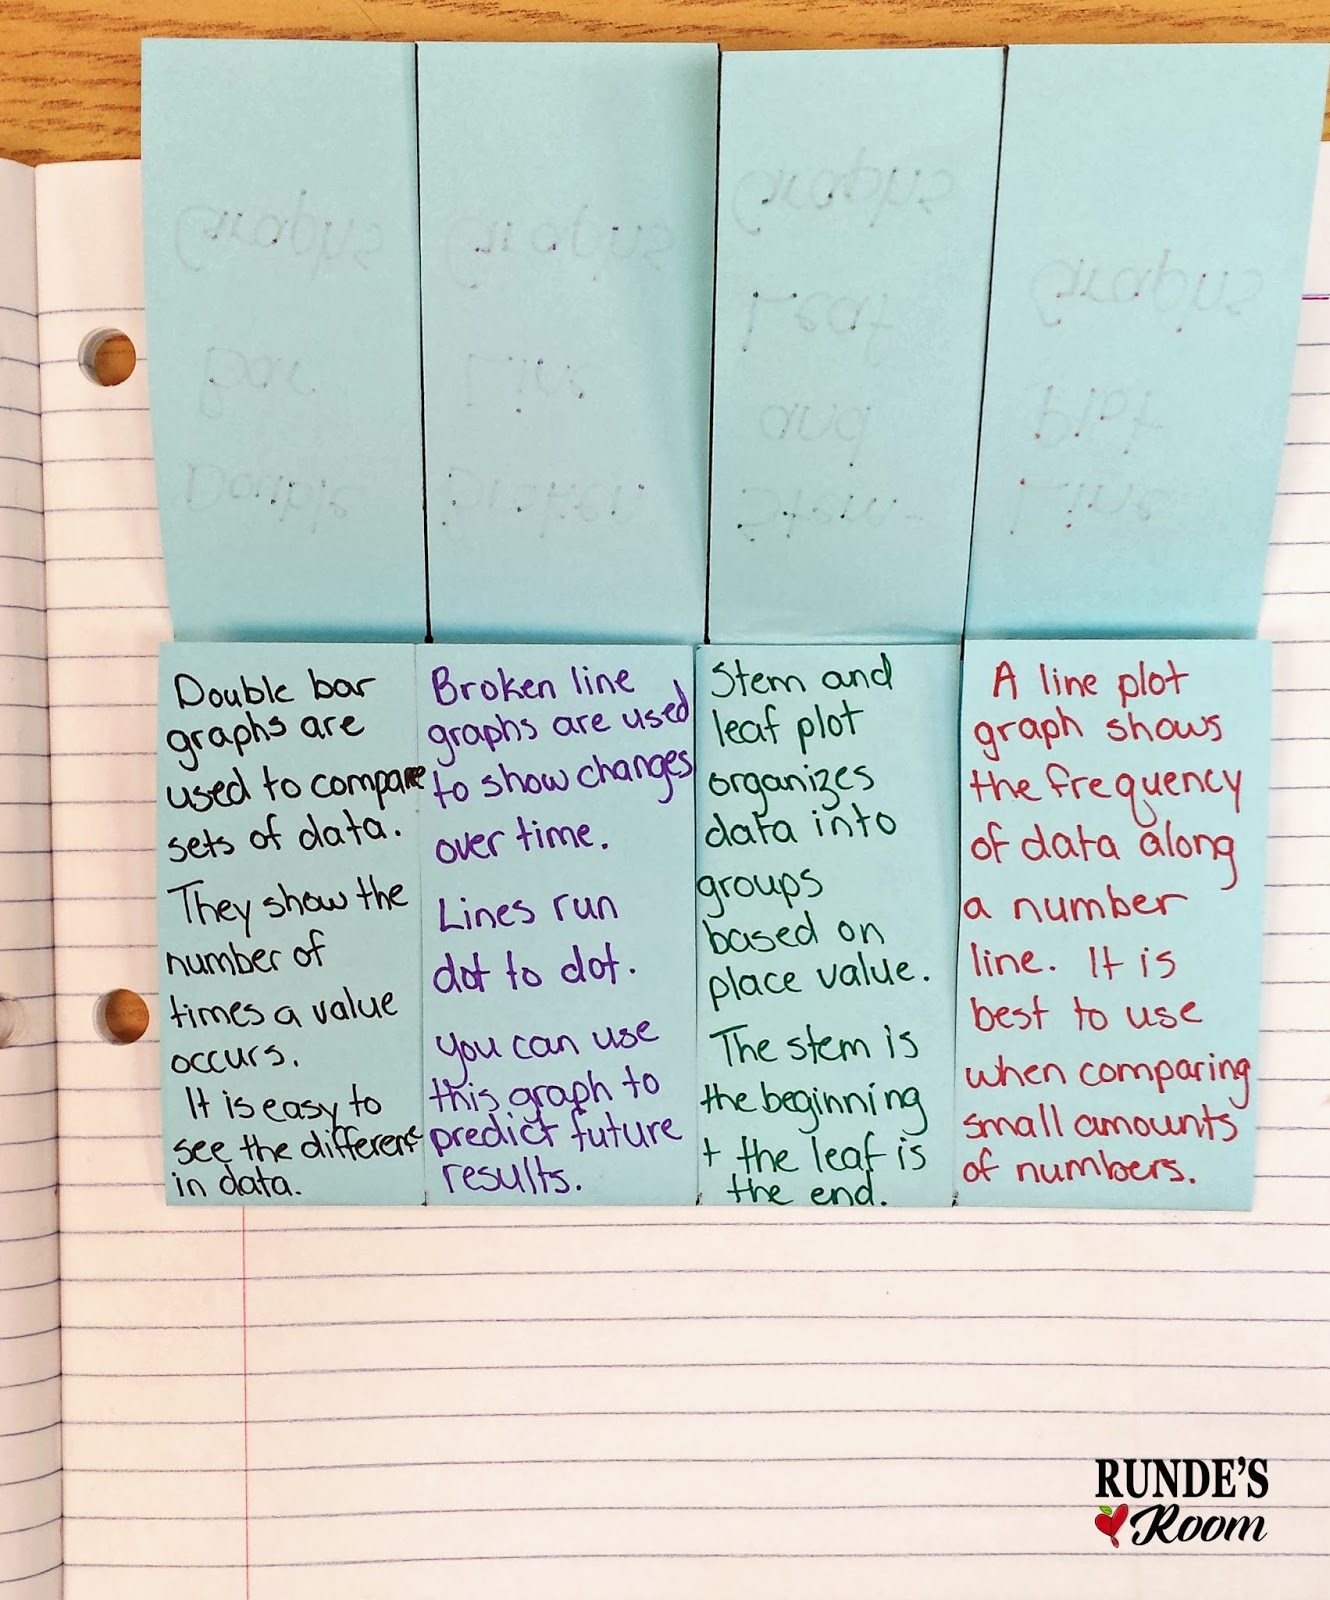 Graphs
Bar
Double
Graphs
Line
Broken
Graphs
Leaf
and
Stem-
Graphs
Plot
Line
Double bar
graphs are
used to compare
sets of data.
They show the
number of
times a value
occurs.
It is easy to
see the different
in data.
Broken line
graphs are used
to show changes
over time.
Lines run
dot to dot.
You can use
this graph to
predict future
results.
Stem and
leaf plot
organizes
data into
groups
based on
place value.
The stem is
the beginning
+ the leaf is
the end.
A line plot
graph shows
the frequency
of data along
a number
line. It is
best to use
when comparing
small amounts
of numbers.
RUNDE'S
Room